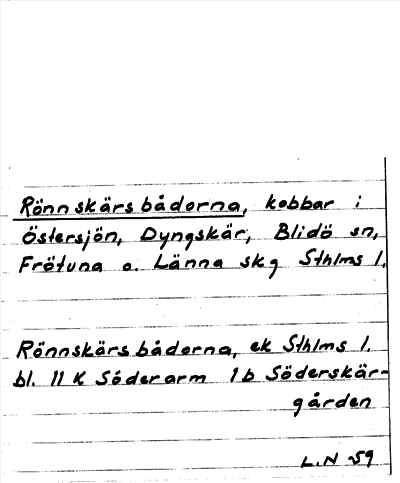 Rönnskärsbådorna, kobbar i
Östersjön, Dyngskär, Blidö sn,
Frötuna o. Länna skg Sthlms l.
Rönnskärsbådorna, ek Sthlms l.
bl. 11 K Söderarm 1b Söderskär-
gården
L.N -59